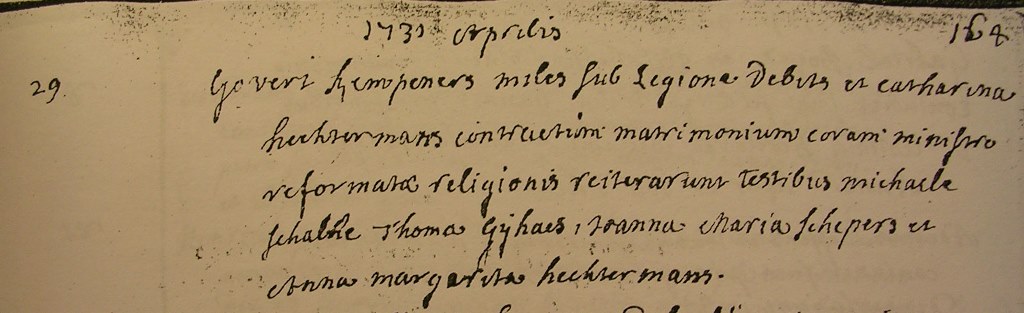 1731 Aprilis 164
29 Govert Kempeners miles sub Legione Debets et catharina
hechtermans contractum matrimonium coram ministro
reformatæ religionis reiterarunt testibus michaele
schalke Thoma Gijhaes, Joanna Maria schepers et
Anna margareta hechtermans.